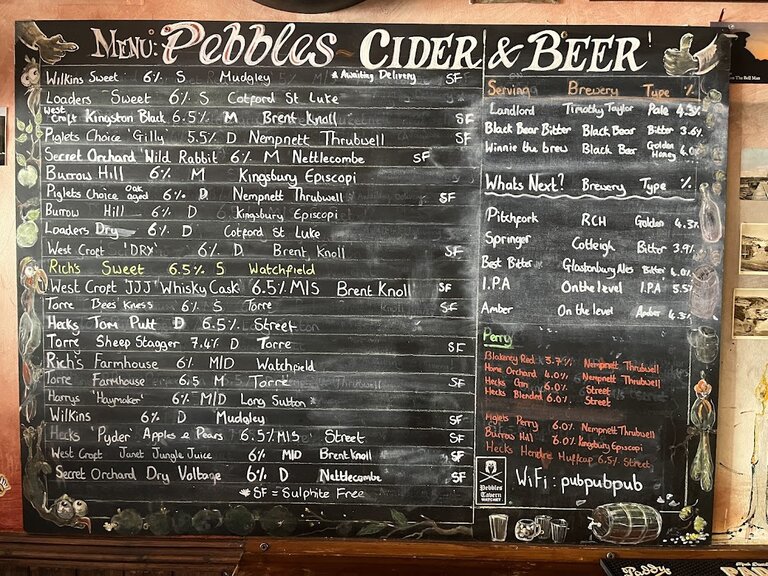 Menu: Pebbles CIDER & BEER
Wilkins Sweet 6% S Mudgley * Awaiting Delivery SF
Loaders Sweet 6% S Cotford St Luke
West Croft Kingston Black 6.5% M Brent Knoll SF
Piglets Choice 'Gilly' 5.5% D Nempnett Thrubwell SF
Secret Orchard 'Wild Rabbit' 6% M Nettlecombe SF
Burrow Hill 6% M Kingsbury Episcopi
Piglets Choice Oak aged 6% D Nempnett Thrubwell SF
Burrow Hill 6% D Kingsbury Episcopi
Loaders Dry 6% D Cotford St Luke
West Croft 'DRY' 6% D Brent Knoll SF
Rich's Sweet 6.5% S Watchfield
West Croft 'JJJ' Whisky Cask' 6.5% M/S Brent Knoll SF
Torre 'Bees' Kness 6% S Torre SF
Hecks Tom Putt D 6.5% Street
Torre Sheep Stagger 7.4% D Torre SF
Rich's Farmhouse 6% M/D Watchfield
Torre Farmhouse 6.5 M Torre SF
Harrys 'Haymaker' 6% M/D Long Sutton *
Wilkins 6% D Mudgley SF
Hecks 'Pyder' Apples & Pears 6.5% M/S Street SF
West Croft Janet Jungle Juice 6% M/D Brent Knoll SF
Secret Orchard Dry Voltage 6% D Nettlecombe SF
* SF = Sulphite Free
Serving Brewery Type %
Landlord Timothy Taylor Pale 4.3%
Black Bear Bitter Black Bear Bitter 3.6%
Winnie the brew Black Bear Golden Honey 4.0%
Whats Next? Brewery Type %
Pitchfork RCH Golden 4.3%
Springer Cotleigh Bitter 3.9%
Best Bitter Glastonbury Ales Bitter 4.0%
I.P.A On the level I.P.A 5.5%
Amber On the level Amber 4.3%
Perry
Blakeney Red 3.7% Nempnett Thrubwell
Home Orchard 4.0% Nempnett Thrubwell
Hecks 6.0% Street
Hecks Blended 6.0% Street
Piglets Perry 6.0% Nempnett Thrubwell
Burrow Hill 6.0% Kingsbury Episcopi
Hecks Hendre Huffcap 6.5% Street
Pebbles
Tavern
WATCHET
WiFi: pubpubpub
Paddy